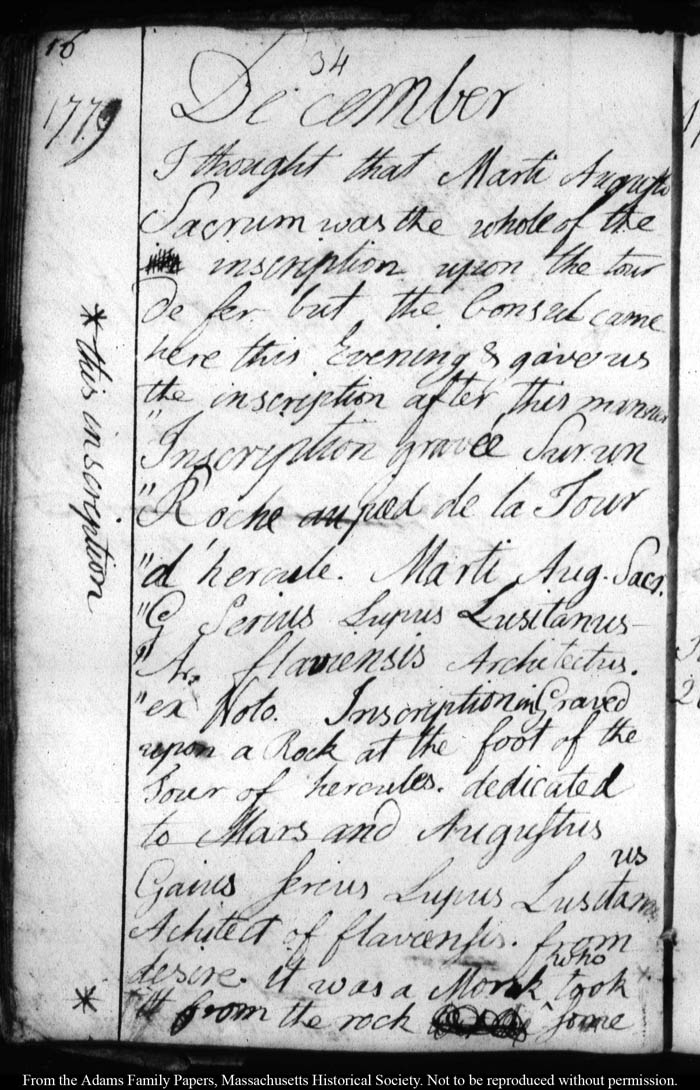 16
34
1779
December
I thought that Marti Augusto
Sacrum was the whole of the
inscription upon the tour
de fer but the Consul came
here this Evening & gave us
the inscription after this manner
"Inscription gravée Sur un
"Roche au pied de la Tour
"d'hercule. Marti Aug. Sacr.
"G Serius Lupus Lusitanus
"A. flaviensis Architectus.
"ex Voto. Inscription in Graved
upon a Rock at the foot of the
Tour of hercules. dedicated
to Mars and Augustus
Gaius Sercus Lupus Lusitanus
Achitect of flavcensis. from
desire. it was a Monk who took
it from the rock some
* this inscription
*
From the Adams Family Papers, Massachusetts Historical Society. Not to be reproduced without permission.